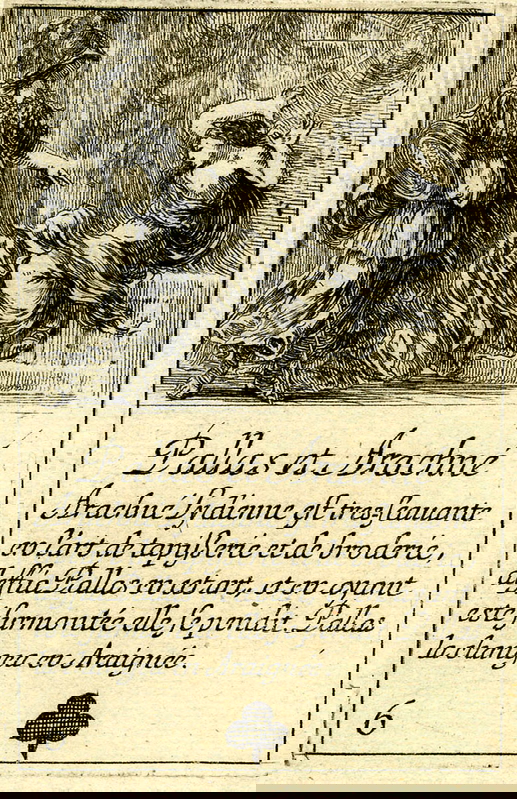 Pallas et Arachné
Arachne Lydienne est tres sçauante
en l'art de tapisserie et de broderie,
deffie Pallas en cet art, et en ayant
esté surmontée elle se pendit. Pallas
la changea en Araignée.
6